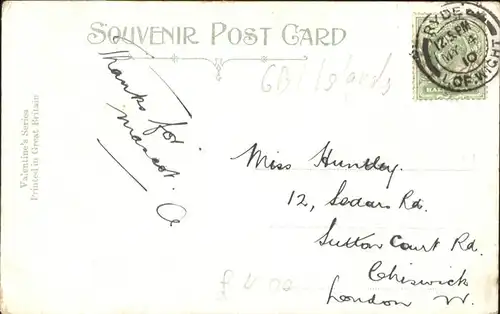 SOUVENIR POST CARD
RYDE
12.15 PM
MY
10
I. OF WIGHT
HAL
GB Islands
Thanks for
mascot. A
Valentine's Series
Printed in Great Britain
Miss Huntley.
12, Sedars Rd.
Sutton Court Rd.
Chiswick
London W.
£